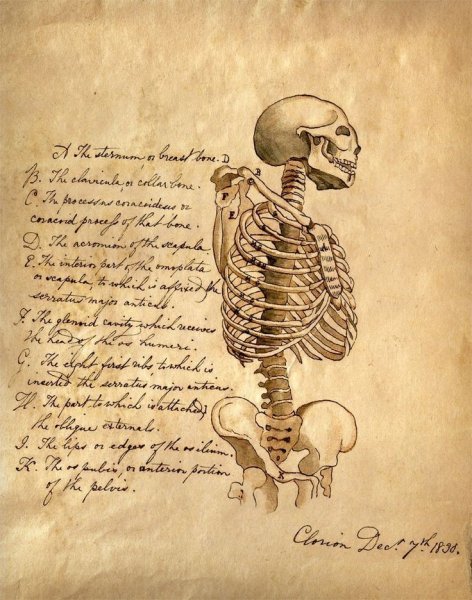 A The sternum or breast bone. D
B. The clavicula or collar bone.
C. The processus coracoideus or
coracoid process of that bone.
D. The acromion of the scapula
E. The interior part of the omoplata
or scapula, to which is affixed the
serratus major anticus.
F. The glenoid cavity which receives
the head of the os humeri.
G. The eight first ribs to which is
inserted the serratus major anticus.
H. The part to which is attached
the oblique externals.
I. The lips or edges of the os ilium.
K. The os pubis, or anterior portion
of the pelvis.
F
E
Dec.r 7th 1830.